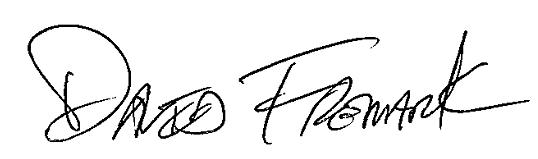 David Fremark